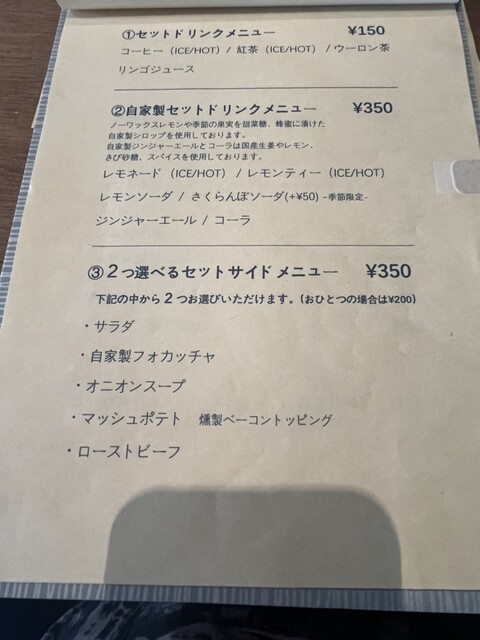 ①セットドリンクメニュー ¥150
コーヒー（ICE/HOT）/ 紅茶（ICE/HOT）/ ウーロン茶
リンゴジュース
②自家製セットドリンクメニュー ¥350
ノーワックスレモンや季節の果実を甜菜糖、蜂蜜に漬けた
自家製シロップを使用しております。
自家製ジンジャーエールとコーラは国産生姜やレモン、
きび砂糖、スパイスを使用しております。
レモネード（ICE/HOT）/ レモンティー（ICE/HOT）
レモンソーダ / さくらんぼソーダ(+¥50) -季節限定-
ジンジャーエール / コーラ
③２つ選べるセットサイドメニュー ¥350
下記の中から２つお選びいただけます。(おひとつの場合は¥200)
・サラダ
・自家製フォカッチャ
・オニオンスープ
・マッシュポテト 燻製ベーコントッピング
・ローストビーフ